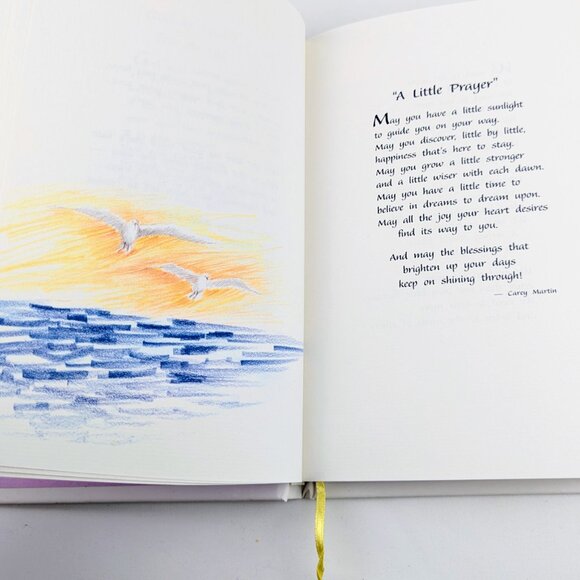 "A Little Prayer"
May you have a little sunlight
to guide you on your way.
May you discover, little by little,
happiness that's here to stay.
May you grow a little stronger
and a little wiser with each dawn.
May you have a little time to
believe in dreams to dream upon.
May all the joy your heart desires
find its way to you.
And may the blessings that
brighten up your days
keep on shining through!
— Carey Martin